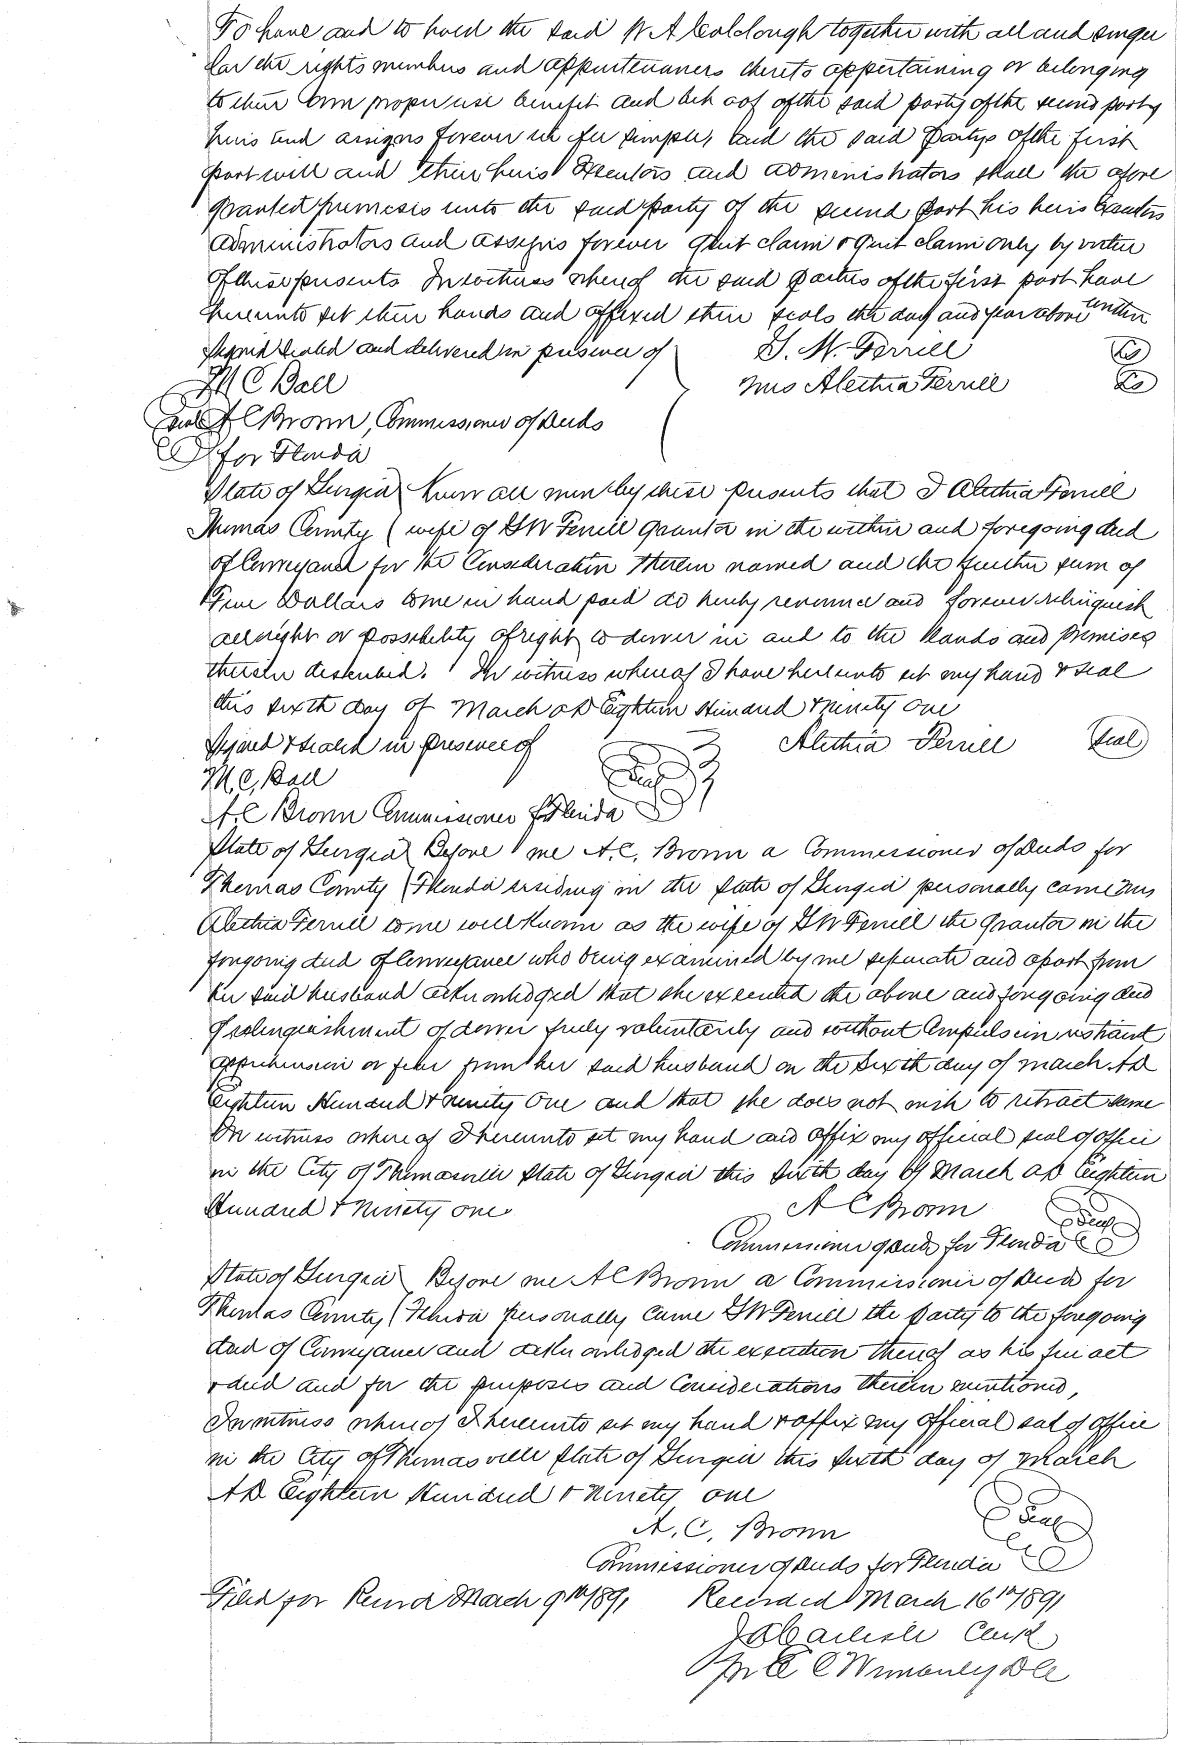 To have and to hold the said W A Colclough together with all and singu
lar the rights members and appurtenances thereto appertaining or belonging
to their own proper use benefit and behoof of the said party of the second party
heirs and assigns forever in fee simple, and the said partys of the first
part will and their heirs Executors and administrators shall the afore
granted premesis unto the said party of the second part his heirs Exautors
administrators and assigns forever quit claim & quit claim only by virtue
of these presents In witness where of the said parties of the first part have
hereunto set their hands and affixed their seals the day and year above written
Signed Sealed and delivered in presence of G. W. Ferrill LS
M C Ball Mrs Alethia Ferrill LS
Seal A C Bronn, Commissioner of Deeds
for Florida
State of Georgia Know all men by these presents that I Alethia Ferrill
Thomas County wife of G W Ferrill grantor in the within and foregoing deed
of Conveyance for the Consideration therein named and the further sum of
Five Dollars to me in hand paid do hereby renounce and forever relinquish
all right or possibility of right to dower in and to the lands and premises
therein described. In witness where of I have hereunto set my hand & seal
this sixth day of March AD Eighteen Hundred & ninety one
Signed & sealed in presence of Alethia Ferrill Seal
M. C. Ball Seal
A. C Bronn Commissioner for Florida
State of Georgia Before me A. C. Bronn a Commissioner of Deeds for
Thomas County Florida residing in the State of Georgia personally came Mrs
Alethia Ferrill to me well known as the wife of G W Ferrill the grantor in the
forgoing deed of Conveyance who being examined by me separate and apart from
her said husband acknowledged that she executed the above and forgoing deed
of relinquishment of dower freely voluntarily and without Compulsion restraint
apprehension or fear from her said husband on the Sixth day of march AD
Eighteen Hundred & ninety One and that she does not wish to retract same
In witness where of I hereunto set my hand and affix my official seal of office
in the City of Thomasville State of Georgia this Sixth day of March AD Eighteen
Hundred & Ninety one A C Bronn Seal
Commissioner of Deeds for Florida
State of Georgia Before me A C Bronn a Commissioner of Deeds for
Thomas County Florida personally came G W Ferrill the party to the foregoing
deed of Conveyance and acknowledged the execution thereof as his free act
& deed and for the purposes and Considerations therein mentioned,
In witness where of I hereunto set my hand & affix my official seal of office
in the City of Thomasville State of Georgia this sixth day of March
AD Eighteen Hundred & Ninety one Seal
A. C. Bronn
Commissioner of Deeds for Florida
Filed for Record March 9th 1891 Recorded March 16th 1891
Carlisle Clerk
DC